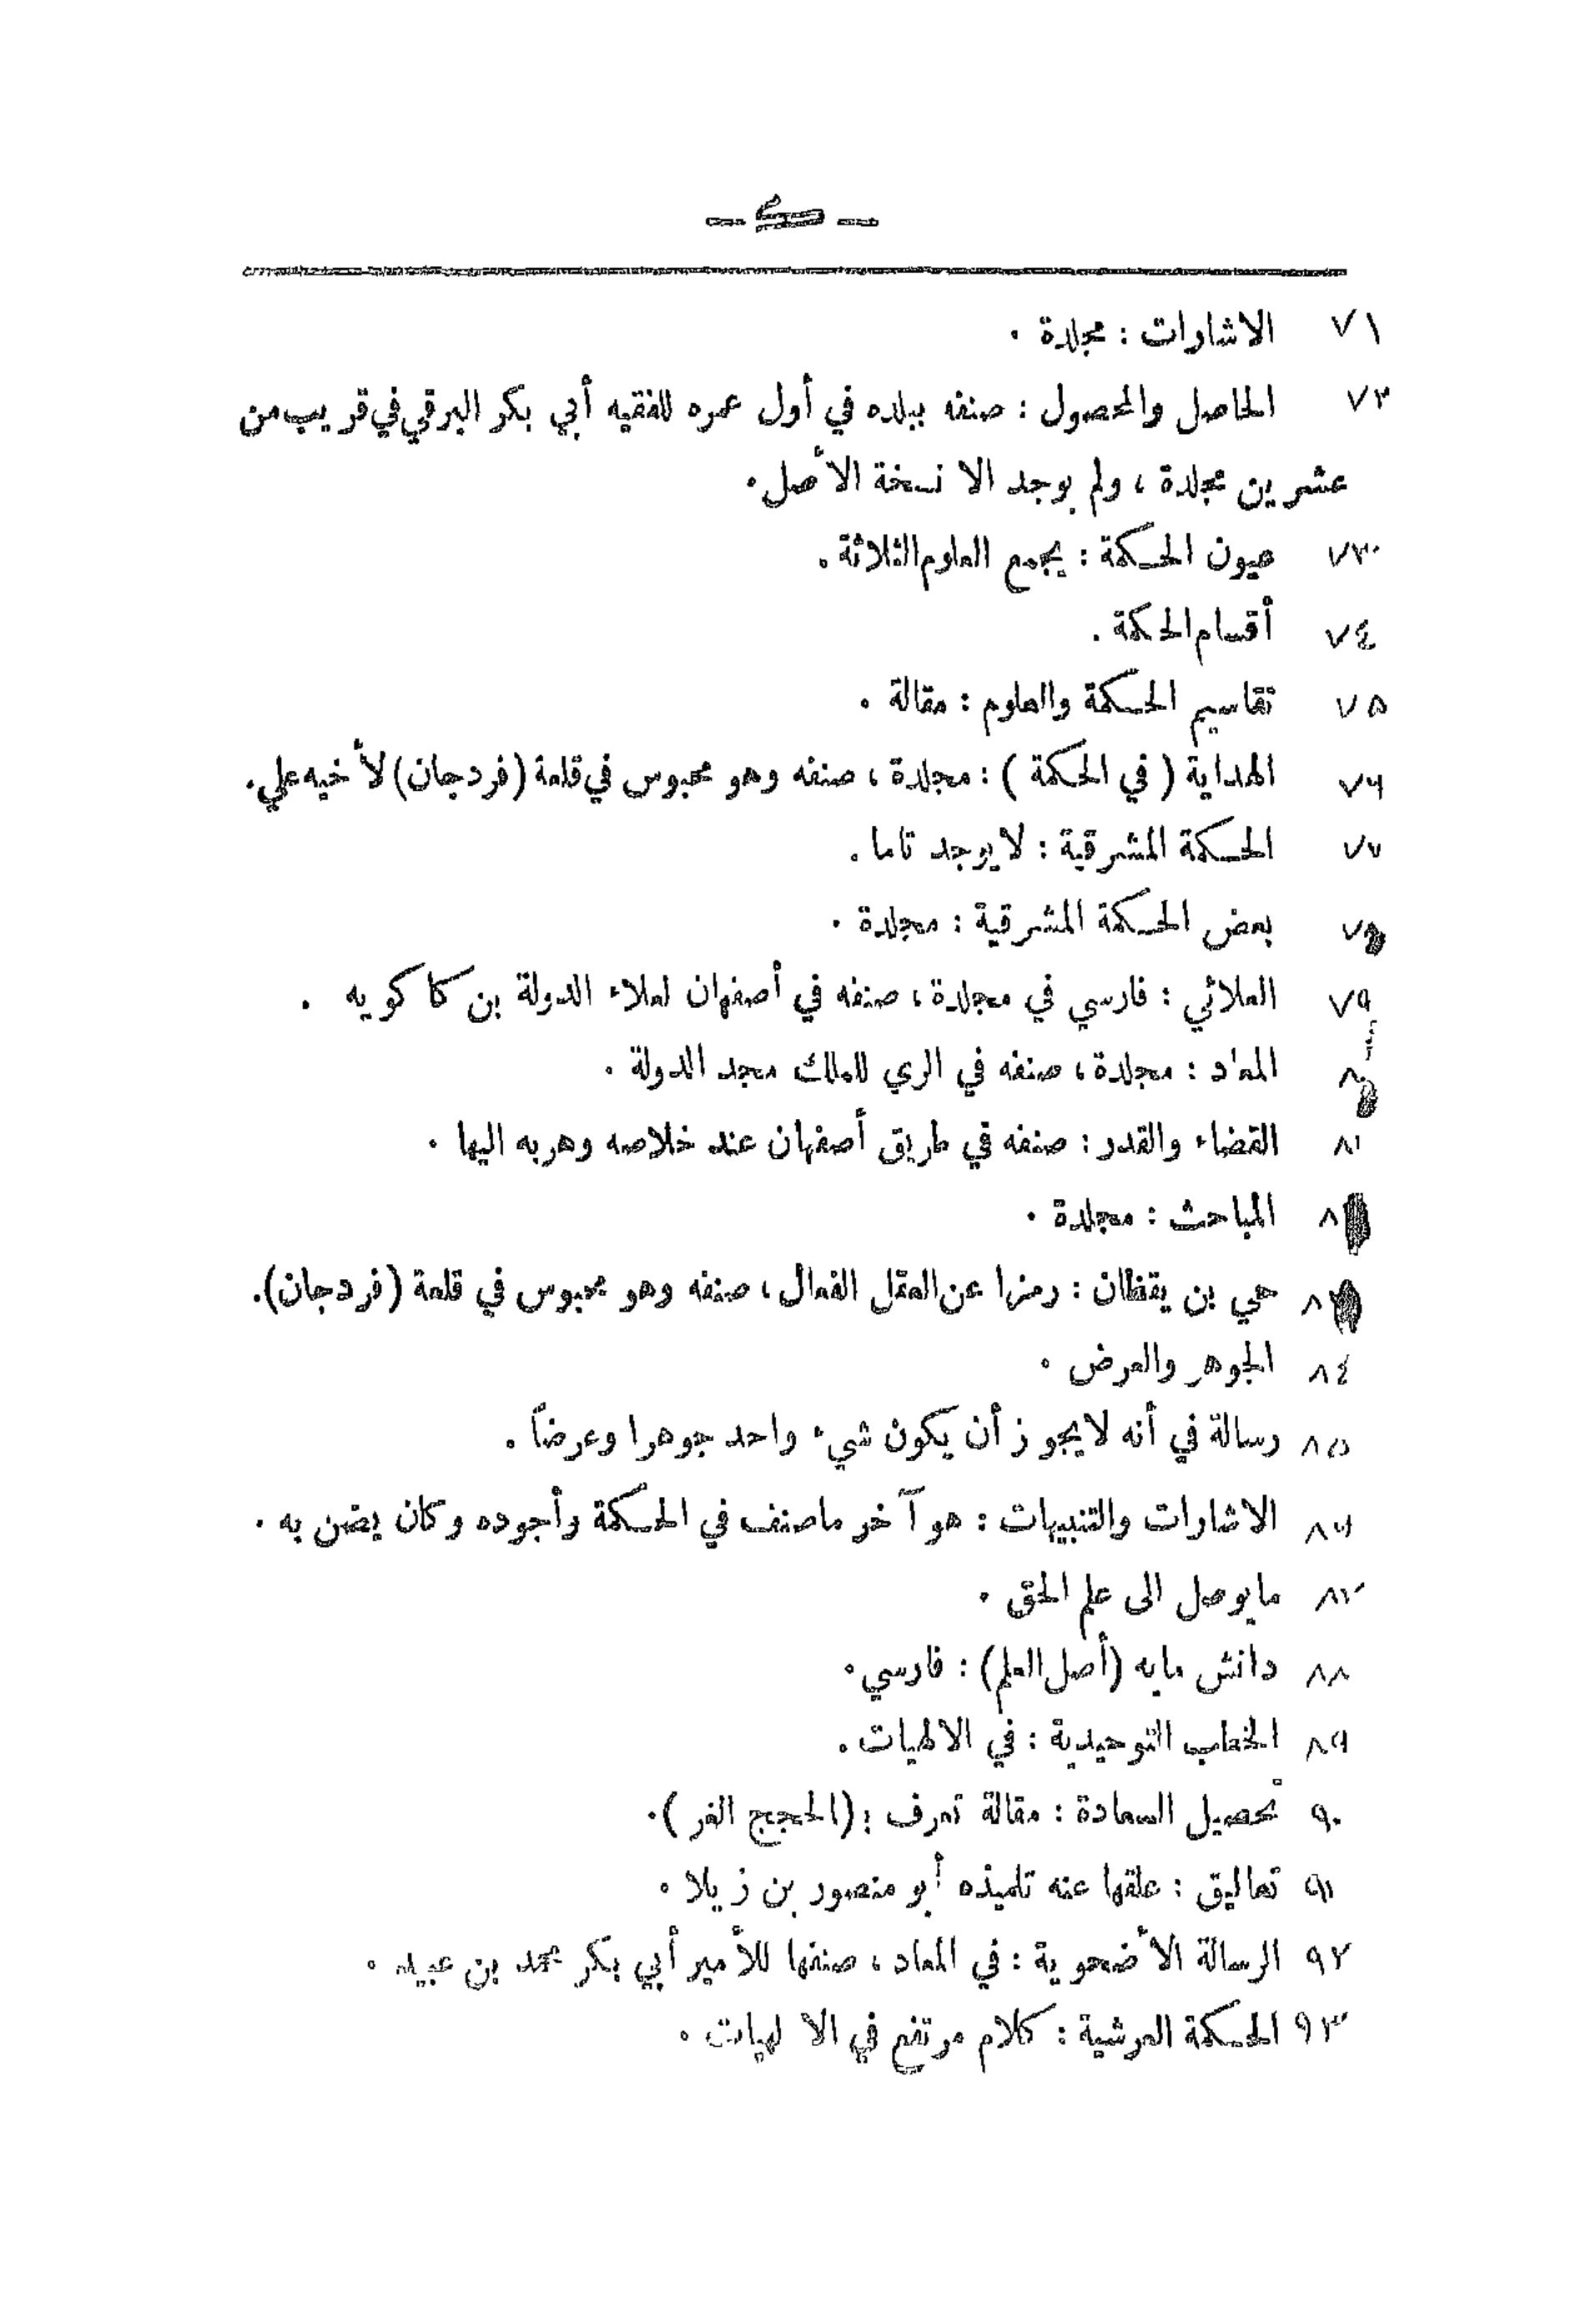 ٧١ الاشارات : مجلدة .
٧٢ الحاصل والمحصول : صنفه ببلده في أول عمره للفقيه أبي بكر البرقي في قريب من
عشرين مجلدة ، ولم يوجد الا نسخة الأصل .
٧٣ عيون الحكمة : يجمع العلوم الثلاثة .
٧٤ أقسام الحكمة .
٧٥ تقاسيم الحكمة والعلوم : مقالة .
٧٦ الهداية ( في الحكمة ) : مجلدة ، صنفه وهو محبوس في قلعة (فردجان) لأخيه علي .
٧٧ الحكمة المشرقية : لايوجد تاما .
٧٨ بعض الحكمة المشرقية : مجلدة .
٧٩ العلائي : فارسي في مجلدة ، صنفه في أصفهان لعلاء الدولة بن كاكويه .
٨٠ المعاد : مجلدة ، صنفه في الري للملك مجد الدولة .
٨١ القضاء والقدر : صنفه في طريق أصفهان عند خلاصه وهربه اليها .
٨٢ المباحث : مجلدة .
٨٣ حي بن يقظان : رمزا عن العقل الفعال ، صنفه وهو محبوس في قلعة (فردجان) .
٨٤ الجوهر والعرض .
٨٥ رسالة في أنه لايجوز أن يكون شيء واحد جوهرا وعرضاً .
٨٦ الاشارات والتنبيهات : هو آخر ماصنف في الحكمة وأجوده وكان يضن به .
٨٧ مايوصل الى علم الحق .
٨٨ دانش مايه (أصل العلم) : فارسي .
٨٩ الخطب التوحيدية : في الالهيات .
٩٠ تحصيل السعادة : مقالة تعرف : (الحجج الغر ) .
٩١ تعاليق : علقها عنه تلميذه أبو منصور بن زيلا .
٩٢ الرسالة الأضحوية : في المعاد ، صنفها للأمير أبي بكر محمد بن عبيد .
٩٣ الحكمة العرشية : كلام مرتفع في الالهيات .